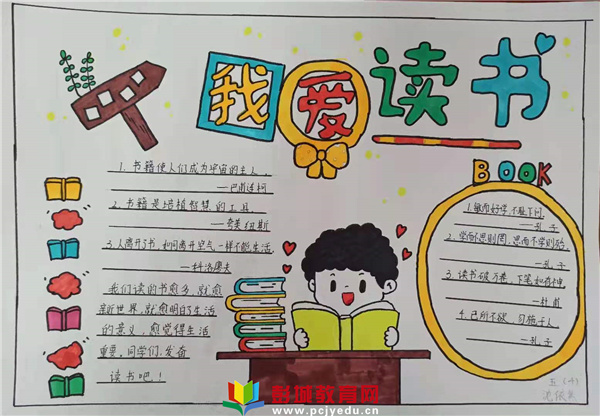 我爱读书
1. 书籍使人们成为宇宙的主人。
——巴甫连柯
2. 书籍是培植智慧的工具
——夸美纽斯
3. 人离开了书，如同离开空气一样不能生活
——科洛廖夫
我们读的书愈多，就愈
新世界，就愈明白了生活
的意义，愈觉得生活
重要，同学们，发奋
读书吧！
BOOK
1. 敏而好学，不耻下问。
——孔子
2. 学而不思则罔，思而不学则殆。
——孔子
3. 读书破万卷，下笔如有神
——杜甫
4. 己所不欲，勿施于人
——孔子
五（4）
彭城教育网
www.pcjyedu.cn